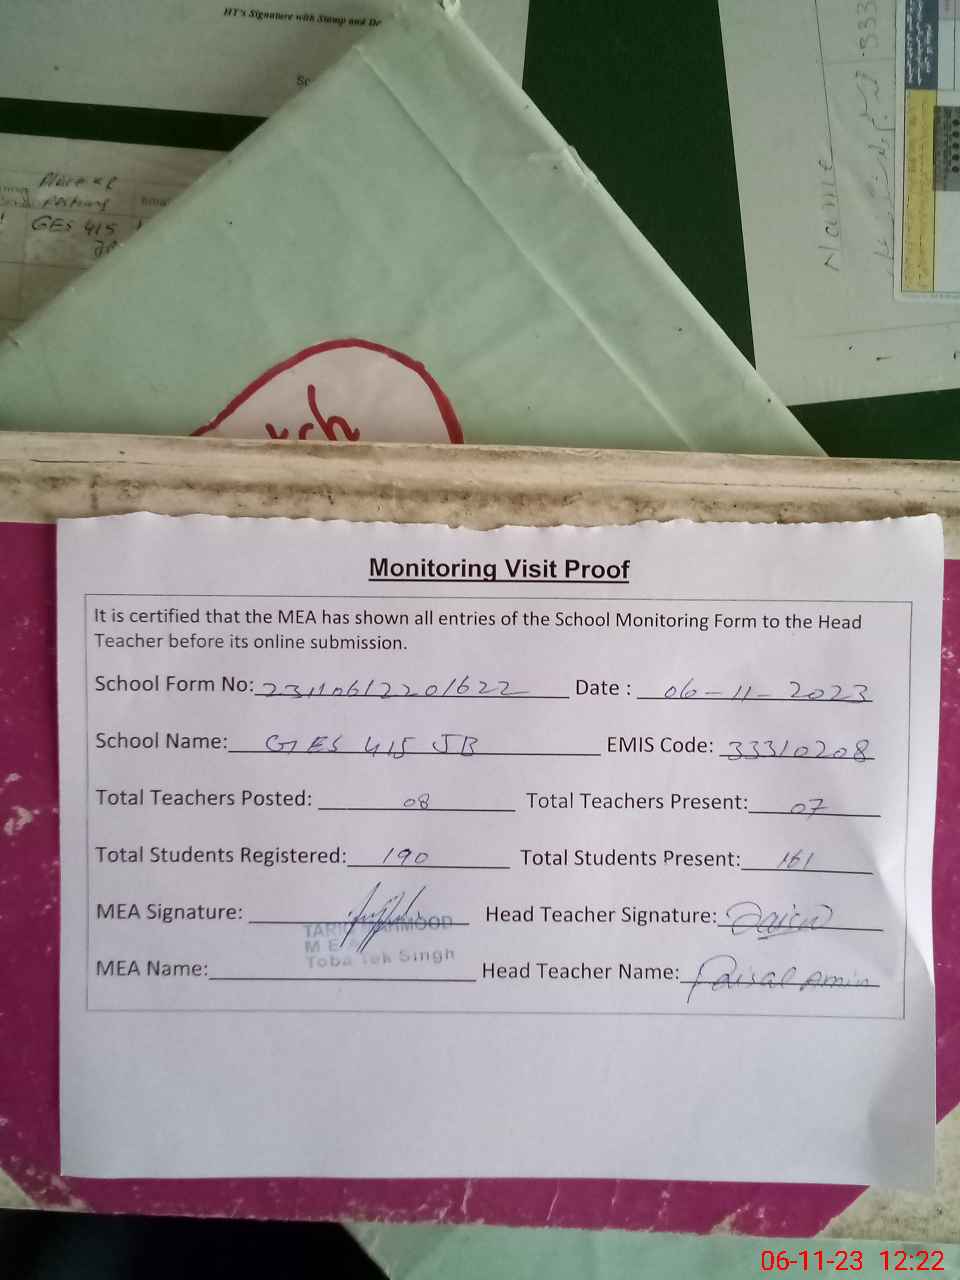 HT's Signature with Stamp and De
Place of
Posting
GES 415
Name
333
Monitoring Visit Proof
It is certified that the MEA has shown all entries of the School Monitoring Form to the Head
Teacher before its online submission.
School Form No: 23110612201622 Date : 06-11-2023
School Name: GES 415 JB EMIS Code: 33310208
Total Teachers Posted: 08 Total Teachers Present: 07
Total Students Registered: 190 Total Students Present: 161
MEA Signature: Head Teacher Signature: Faisal
TARIQ MAHMOOD
MEA
Toba Tek Singh
MEA Name: Head Teacher Name: Faisal Amin
06-11-23 12:22